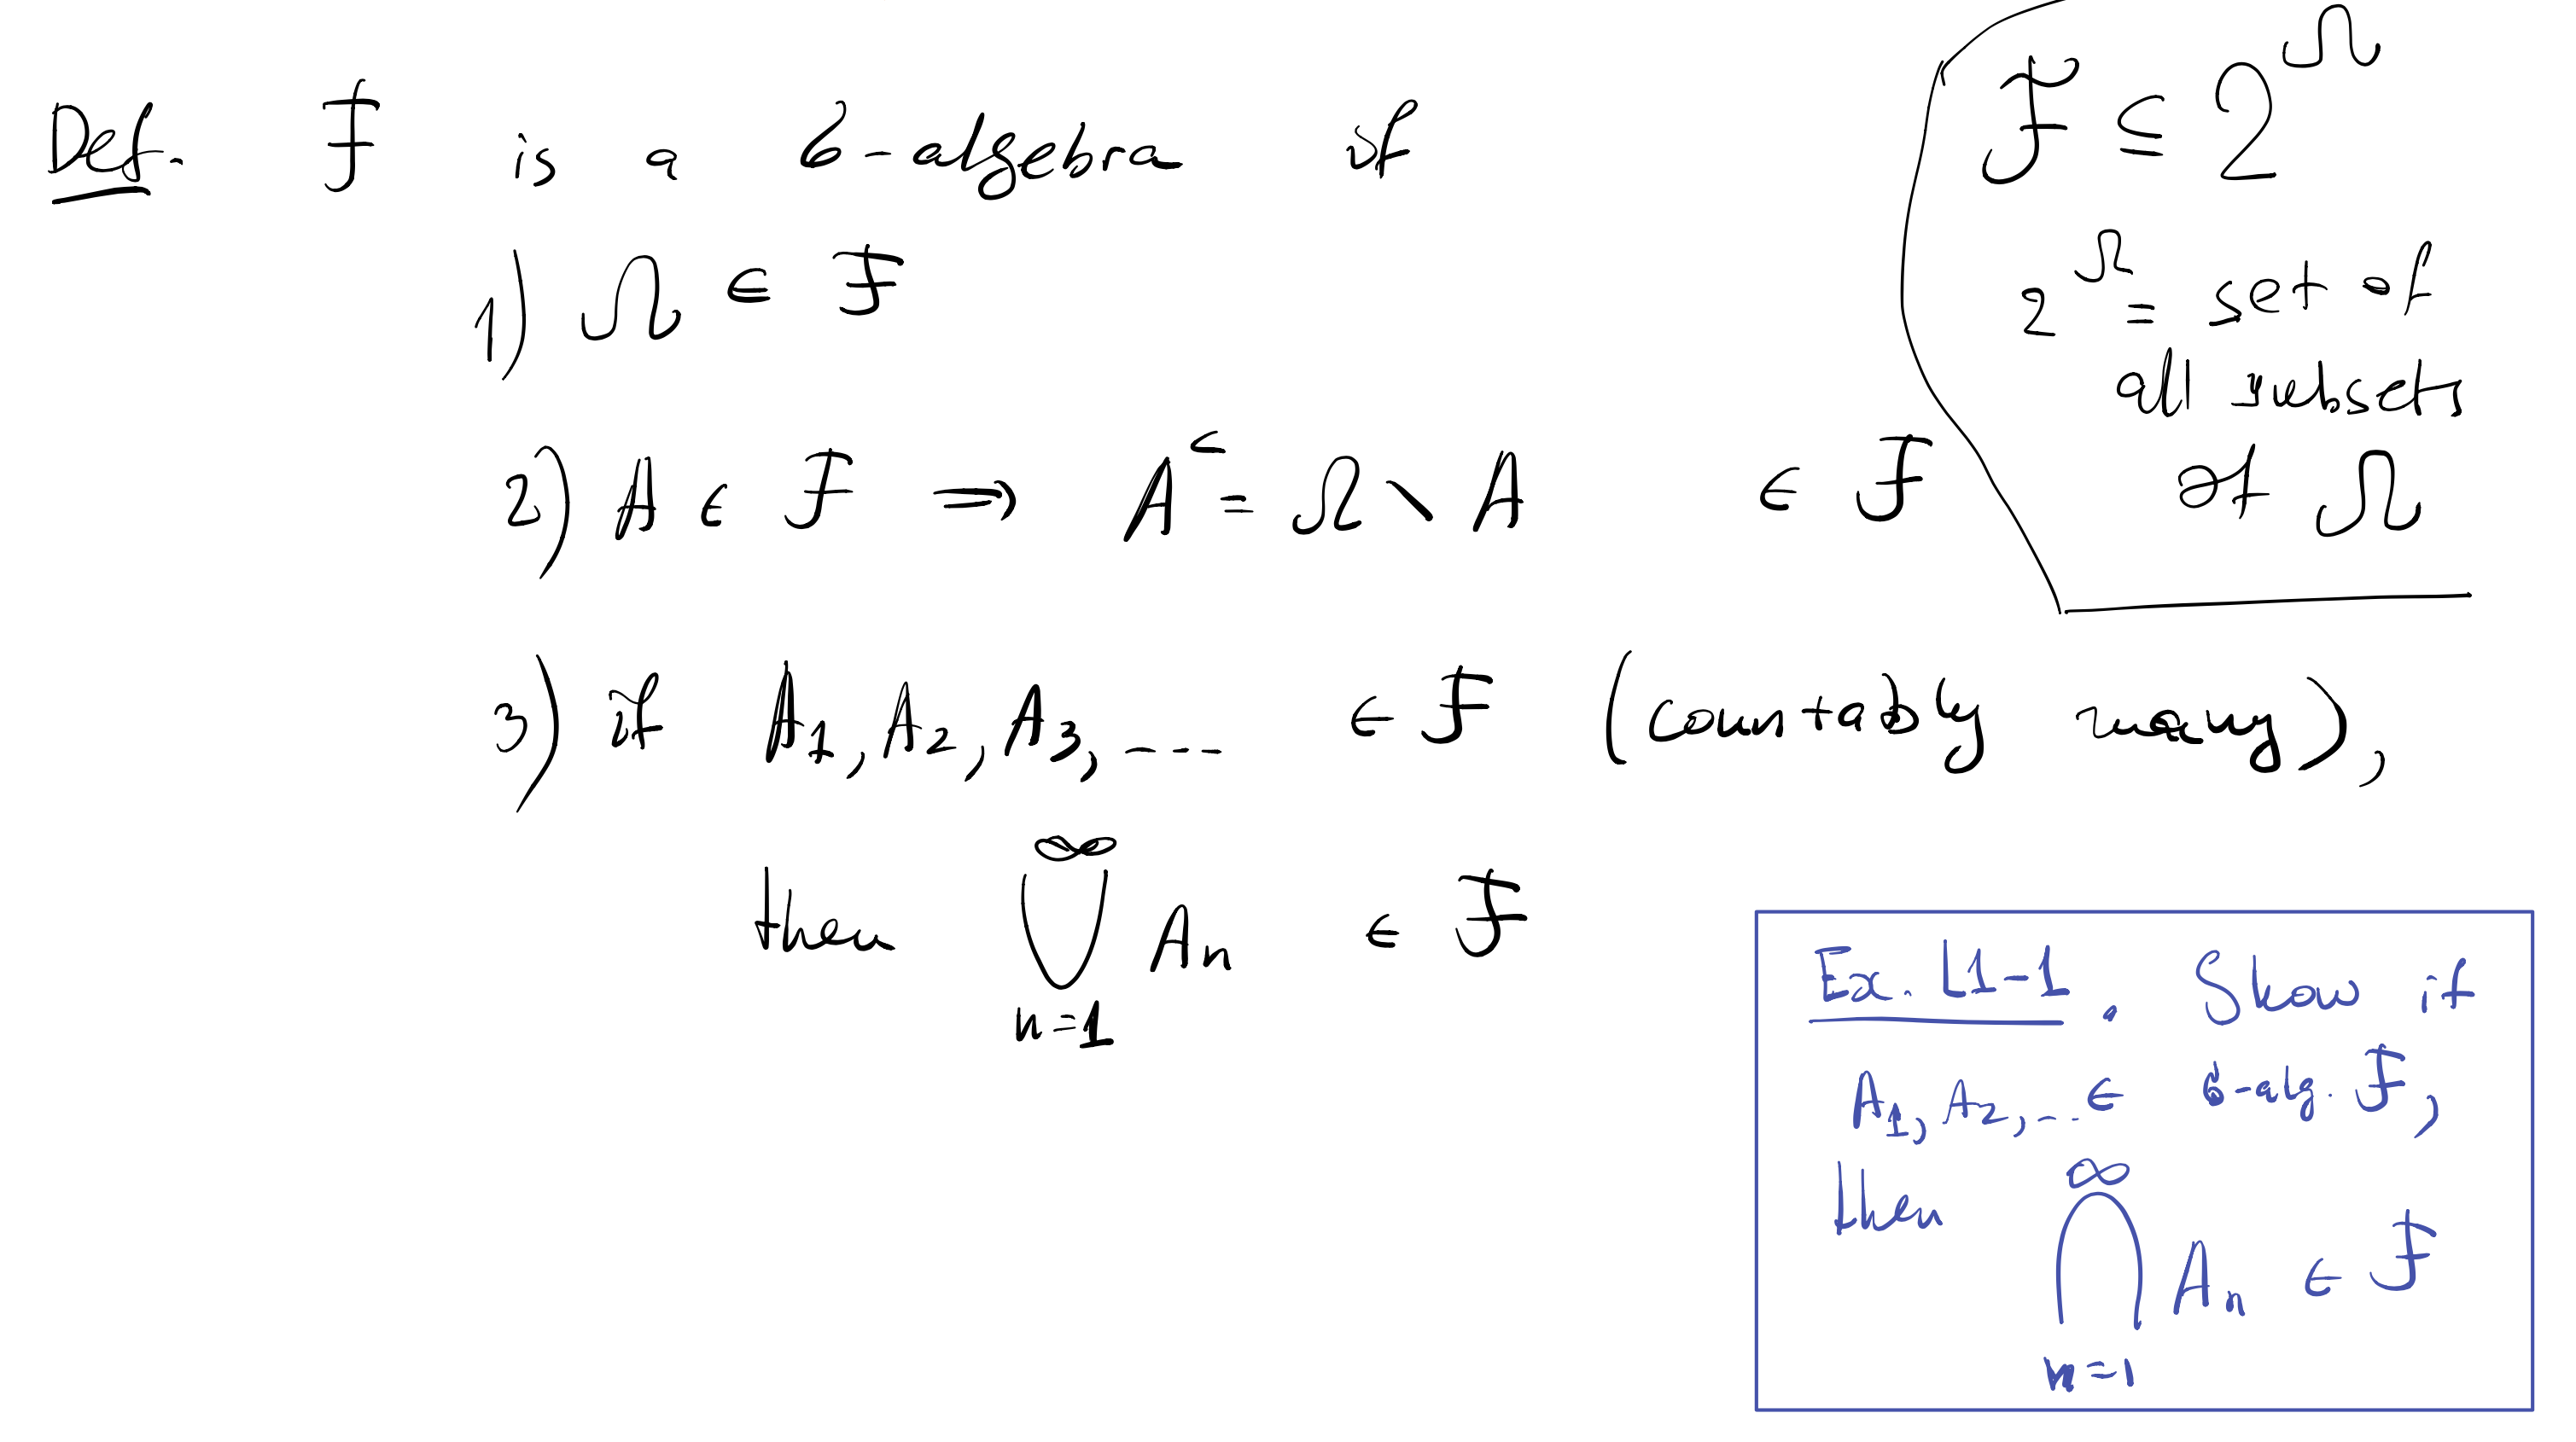 Def. ℱ is a σ-algebra if
1) Ω ∈ ℱ
2) A ∈ ℱ ⇒ Aᶜ = Ω \ A ∈ ℱ
3) if A₁, A₂, A₃, ---- ∈ ℱ (countably many),
then ⋃_{n=1}^{∞} Aₙ ∈ ℱ
ℱ ⊆ 2^Ω
2^Ω = set of
all subsets
of Ω
Ex. L1-1. Show if
A₁, A₂, … ∈ σ-alg. ℱ,
then ⋂_{n=1}^{∞} Aₙ ∈ ℱ